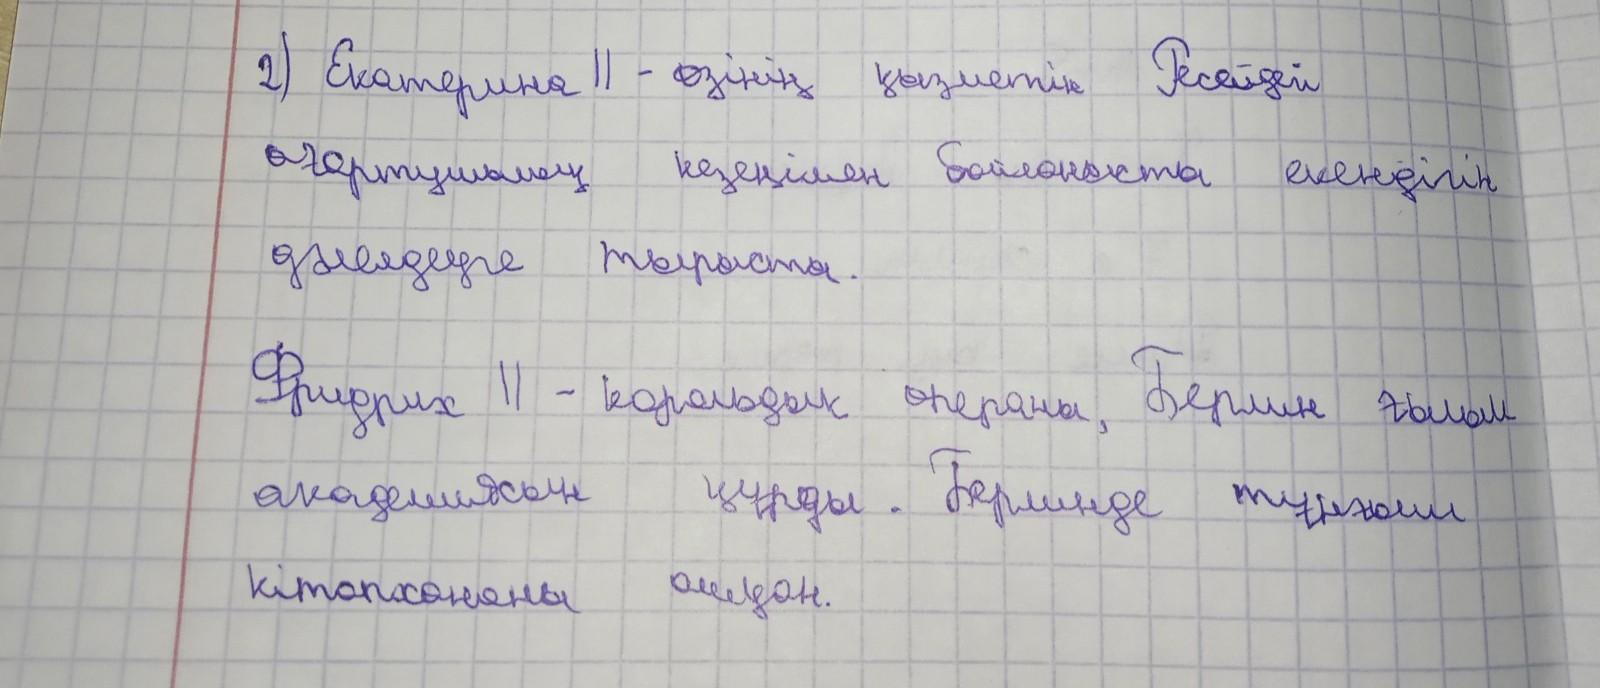 2) Екатерина II - өзінің қызметік Ресейдей
ағартушылық кезеңімен байланыста екендігін
дәлелдеуге тырысты.
Фридрих II - корольдық операны, Берлин ғылым
академиясын құрды. Берлинде тұңғыш
кітапхананы ашқан.